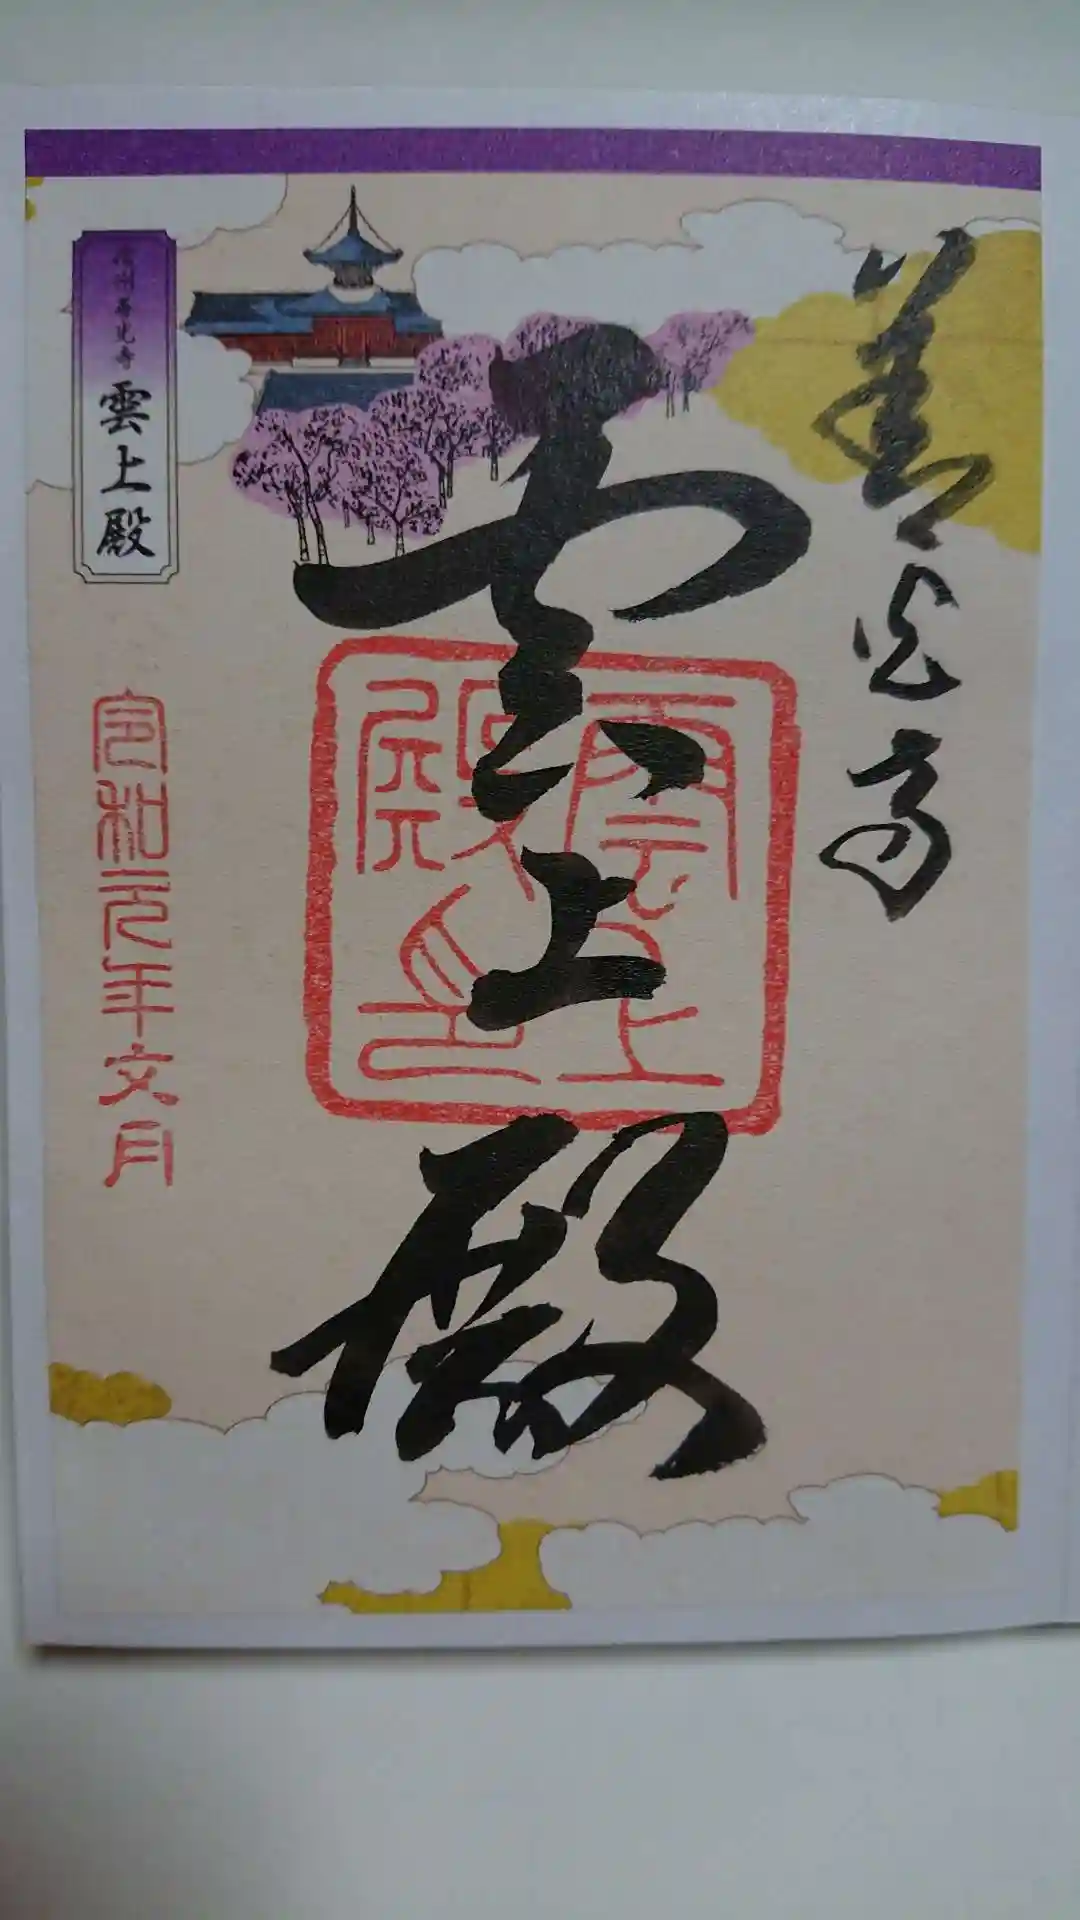 善光寺
雲上殿
雲上
殿印
信州善光寺
雲上殿
令和元年文月